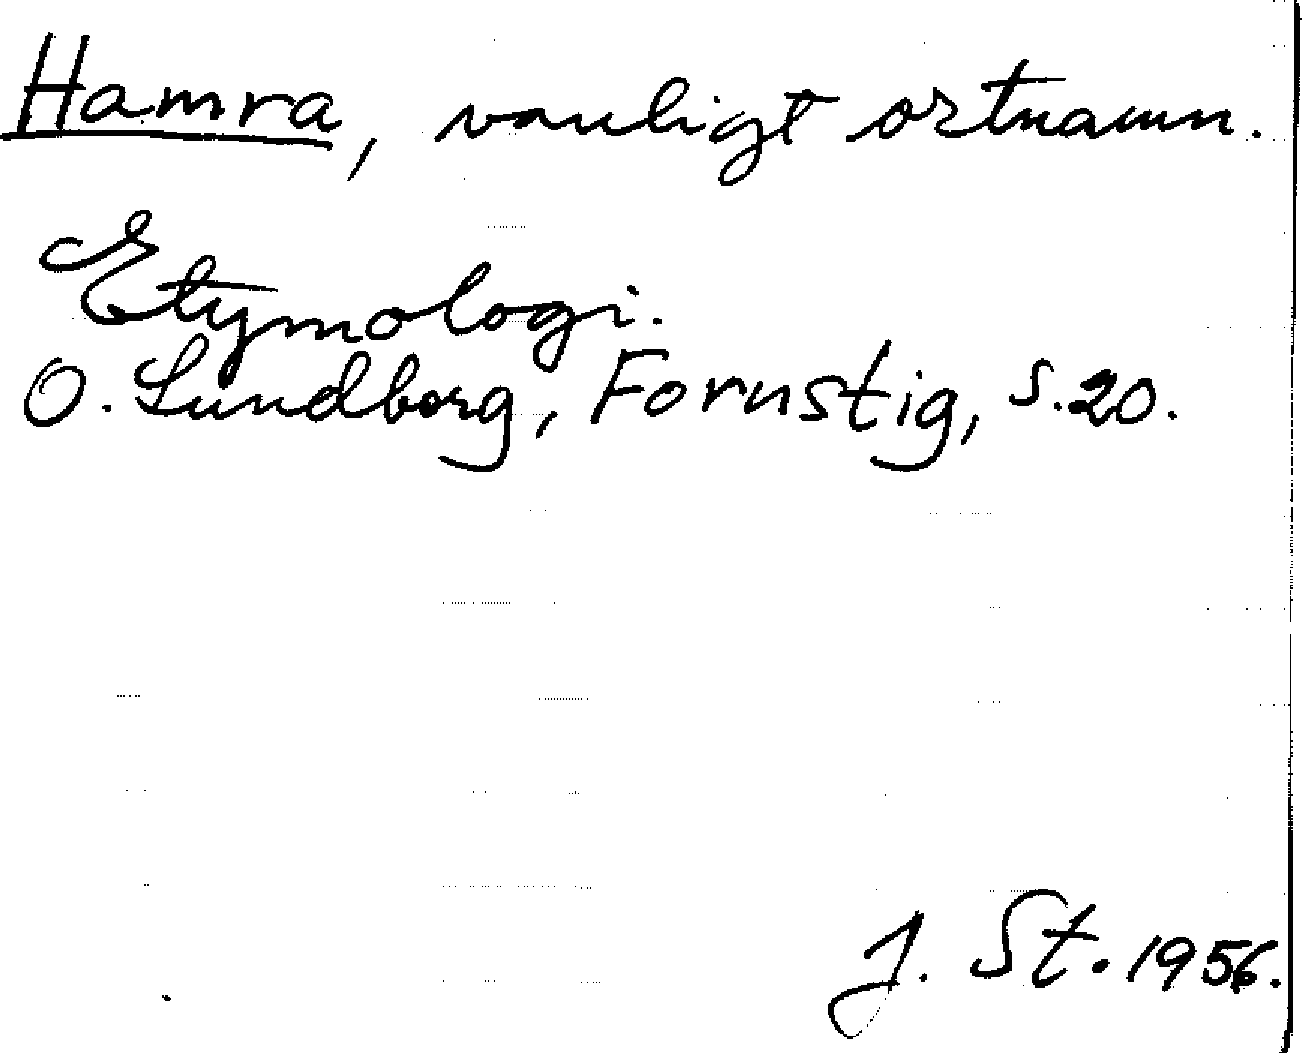 Hamra, vanligt ortnamn.
Etymologi.
O. Lundborg, Fornstig, s. 20.
J. St. 1956.